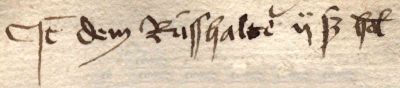 It dem Rüsshalter ij ß hel